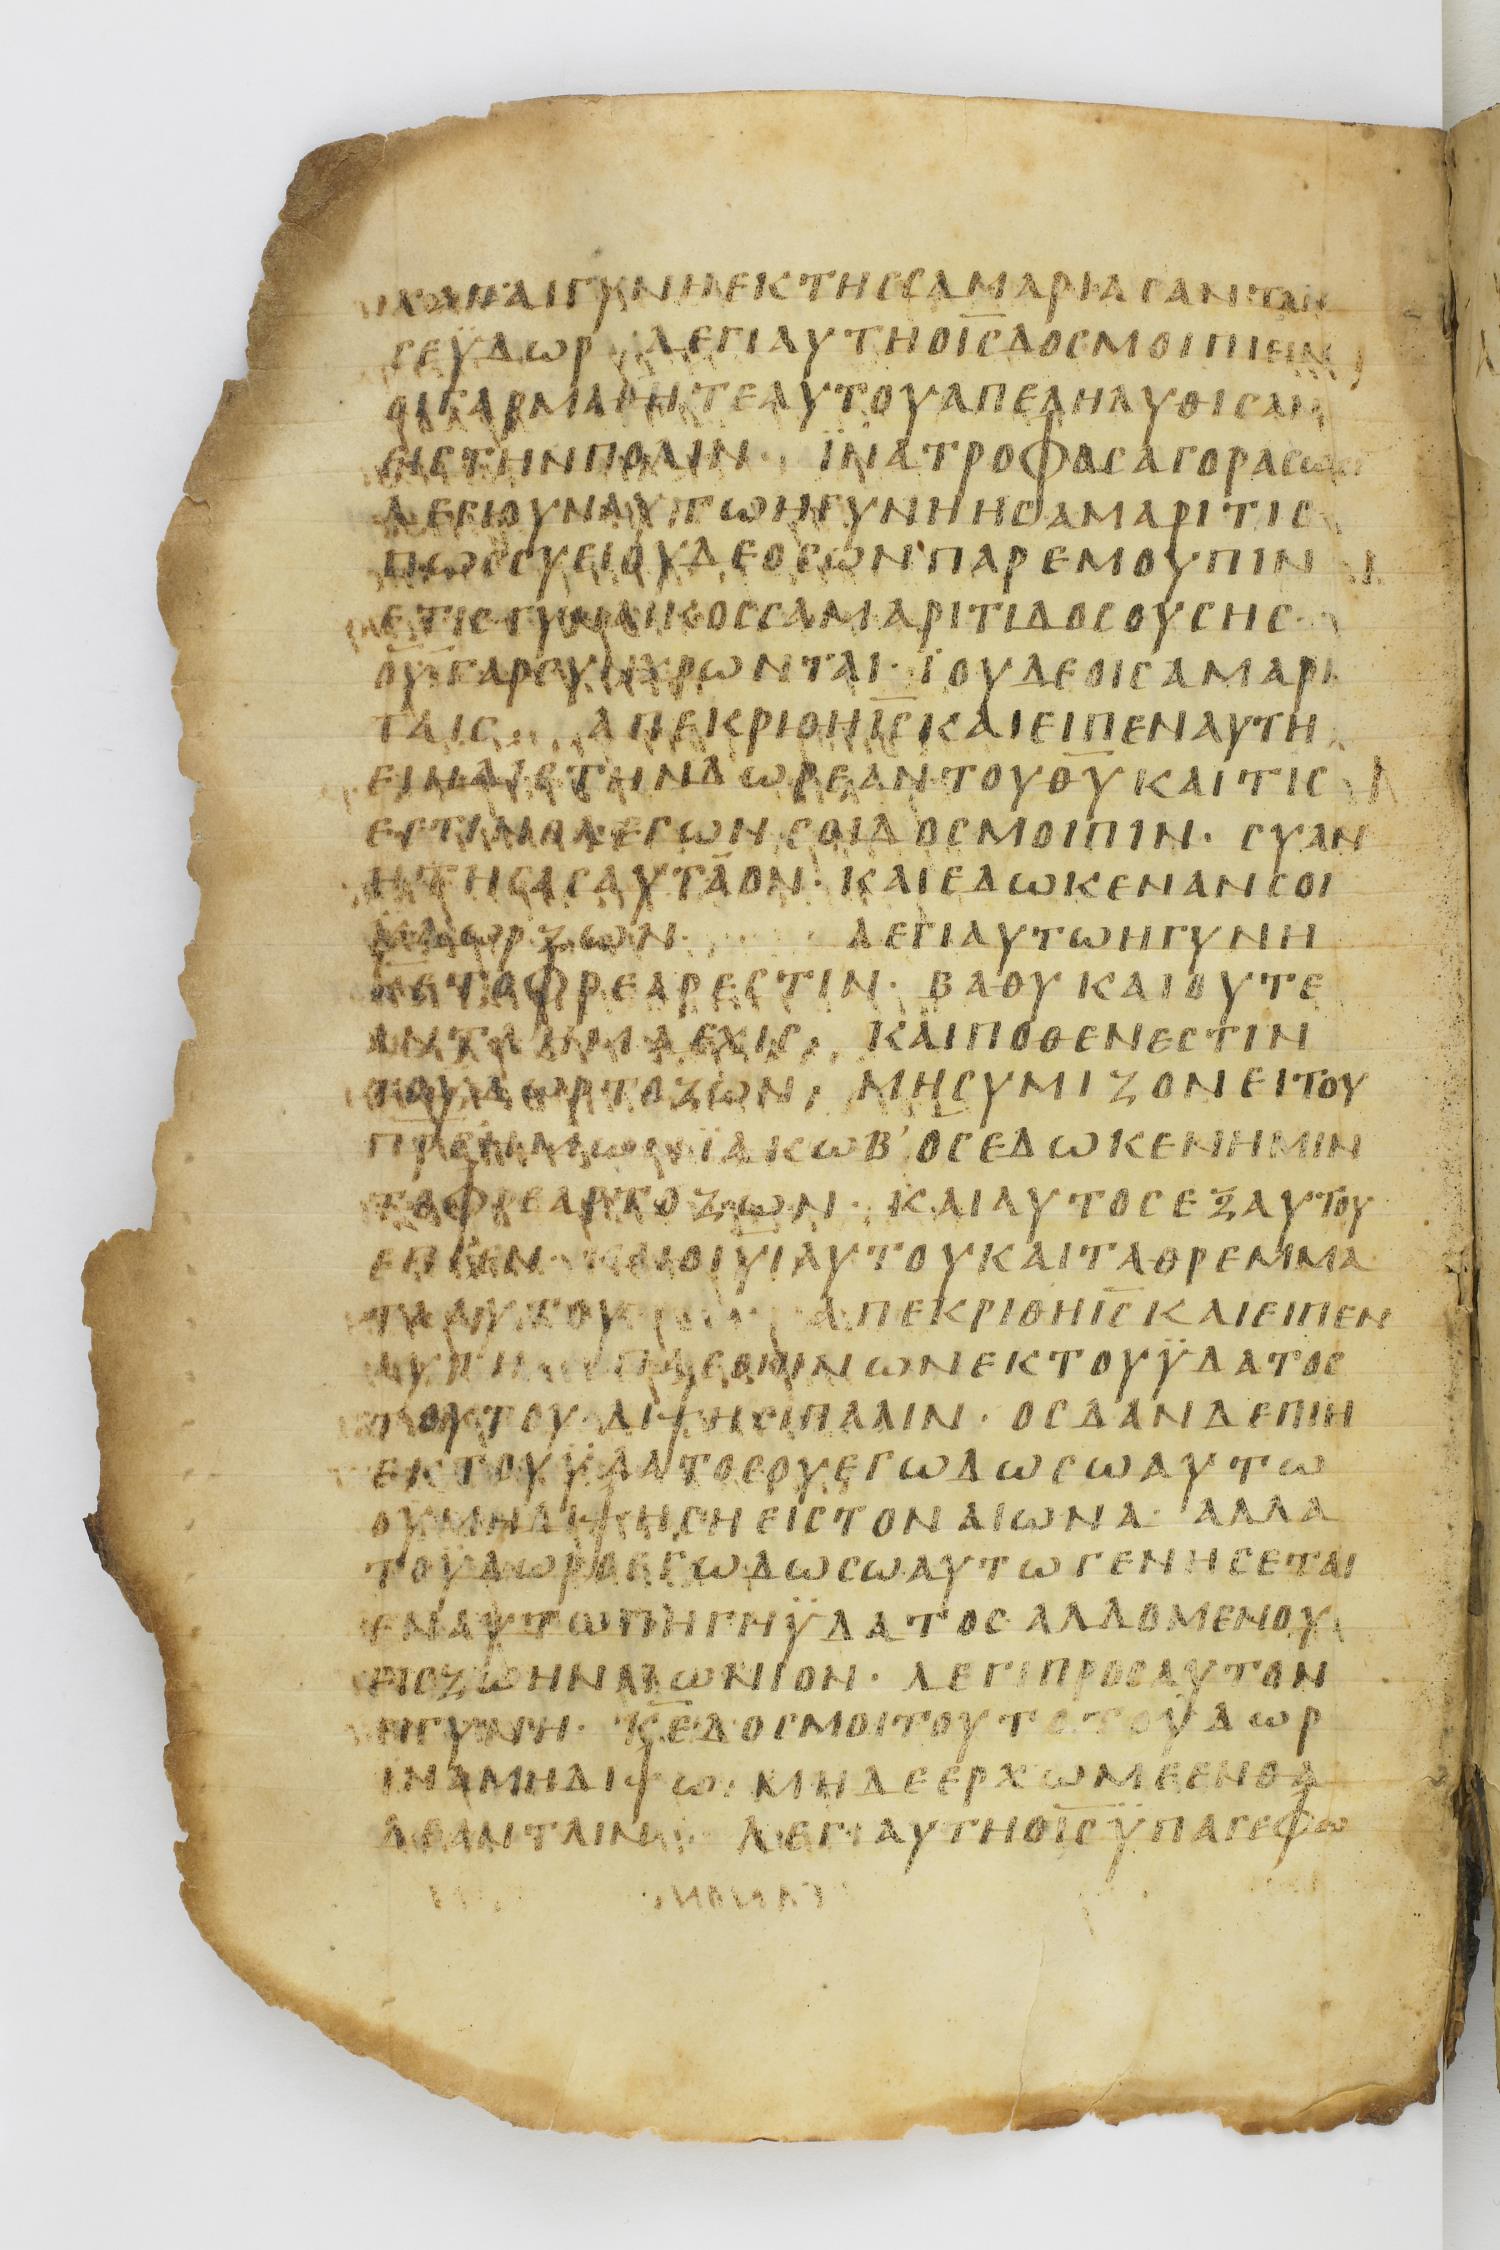 ΚΑΙ ΓΥΝΗ ΕΚ ΤΗС СΑΜΑΡΙΑС ΑΝΤΛΗ
СΕ ΫΔΩΡ ΛΕΓΙ ΑΥΤΗ Ο ΙС ΔΟС ΜΟΙ ΠΙΕΙΝ
ΟΙ ΓΑΡ ΜΑΘΗΤΕ ΑΥΤΟΥ ΑΠΕΛΗΛΥΘΙСΑΝ
ΕΙС ΤΗΝ ΠΟΛΙΝ · ΪΝΑ ΤΡΟΦΑС ΑΓΟΡΑСΩСΙ
ΛΕΓΙ ΟΥΝ ΑΥΤΩ Η ΓΥΝΗ Η СΑΜΑΡΙΤΙС
ΠΩС СΥ ΕΙΟΥΔΕΟС ΩΝ ΠΑΡ ΕΜΟΥ ΠΙΝ
ΕΤΙС ΓΥΝΑΙΚΟС СΑΜΑΡΙΤΙΔΟС ΟΥСΗС ·
ΟΥ ΓΑΡ СΥΝΧΡΩΝΤΑΙ · ΪΟΥΔΕΟΙ СΑΜΑΡΙ
ΤΑΙС · ΑΠΕΚΡΙΘΗ ΙС ΚΑΙ ΕΙΠΕΝ ΑΥΤΗ
ΕΙ ΗΔΙС ΤΗΝ ΔΩΡΕΑΝ ΤΟΥ ΘΥ ΚΑΙ ΤΙС
ΕСΤΙΝ Ο ΛΕΓΩΝ СΟΙ ΔΟС ΜΟΙ ΠΙΝ · СΥ ΑΝ
ΗΤΗСΑС ΑΥΤΑΟΝ · ΚΑΙ ΕΔΩΚΕΝ ΑΝ СΟΙ
ΫΔΩΡ ΖΩΝ · ΛΕΓΙ ΑΥΤΩ Η ΓΥΝΗ
ΚΕ ΤΟ ΦΡΕΑΡ ΕСΤΙΝ · ΒΑΘΥ ΚΑΙ ΟΥΤΕ
ΑΝΤΛΗΜΑ ΕΧΙС · ΚΑΙ ΠΟΘΕΝ ΕСΤΙΝ
ΤΟ ΥΔΩΡ ΤΟ ΖΩΝ · ΜΗ СΥ ΜΙΖΟΝ ΕΙ ΤΟΥ
ΠΡС ΗΜΩΝ ΪΑΚΩΒ’ ΟС ΕΔΩΚΕΝ ΗΜΙΝ
ΤΟ ΦΡΕΑΡ ΤΟ ΖΩΝ · ΚΑΙ ΑΥΤΟС ΕΞ ΑΥΤΟΥ
ΕΠΙΕΝ · ΚΑΙ ΟΙ ΥΙ ΑΥΤΟΥ ΚΑΙ ΤΑ ΘΡΕΜΜΑ
ΤΑ ΑΥΤΟΥ · ΑΠΕΚΡΙΘΗ ΙС ΚΑΙ ΕΙΠΕΝ
ΑΥΤΗ · ΠΑС Ο ΠΙΝΩΝ ΕΚ ΤΟΥ ΫΔΑΤΟС
ΤΟΥΤΟΥ ΔΙΨΗСΙ ΠΑΛΙΝ · ΟС Δ ΑΝ Δ ΕΠΙΗ
ΕΚ ΤΟΥ ΫΔΑΤΟС ΟΥ ΕΓΩ ΔΩСΩ ΑΥΤΩ
ΟΥ ΜΗ ΔΙΨΗСΗ ΕΙС ΤΟΝ ΑΙΩΝΑ · ΑΛΛΑ
ΤΟ ΫΔΩΡ Ο ΕΓΩ ΔΩСΩ ΑΥΤΩ ΓΕΝΗСΕΤΑΙ
ΕΝ ΑΥΤΩ ΠΗΓΗ ΫΔΑΤΟС ΑΛΛΟΜΕΝΟΥ
ΕΙС ΖΩΗΝ ΑΙΩΝΙΟΝ · ΛΕΓΙ ΠΡΟС ΑΥΤΟΝ
Η ΓΥΝΗ · ΚΕ ΔΟС ΜΟΙ ΤΟΥΤΟ ΤΟ ΥΔΩΡ
ΙΝΑ ΜΗ ΔΙΨΩ · ΜΗΔΕ ΕΡΧΩΜΕ ΕΝΘΑ
ΔΕ ΑΝΤΛΙΝ · ΛΕΓΙ ΑΥΤΗ Ο ΙС ΫΠΑΓΕ ΦΩ